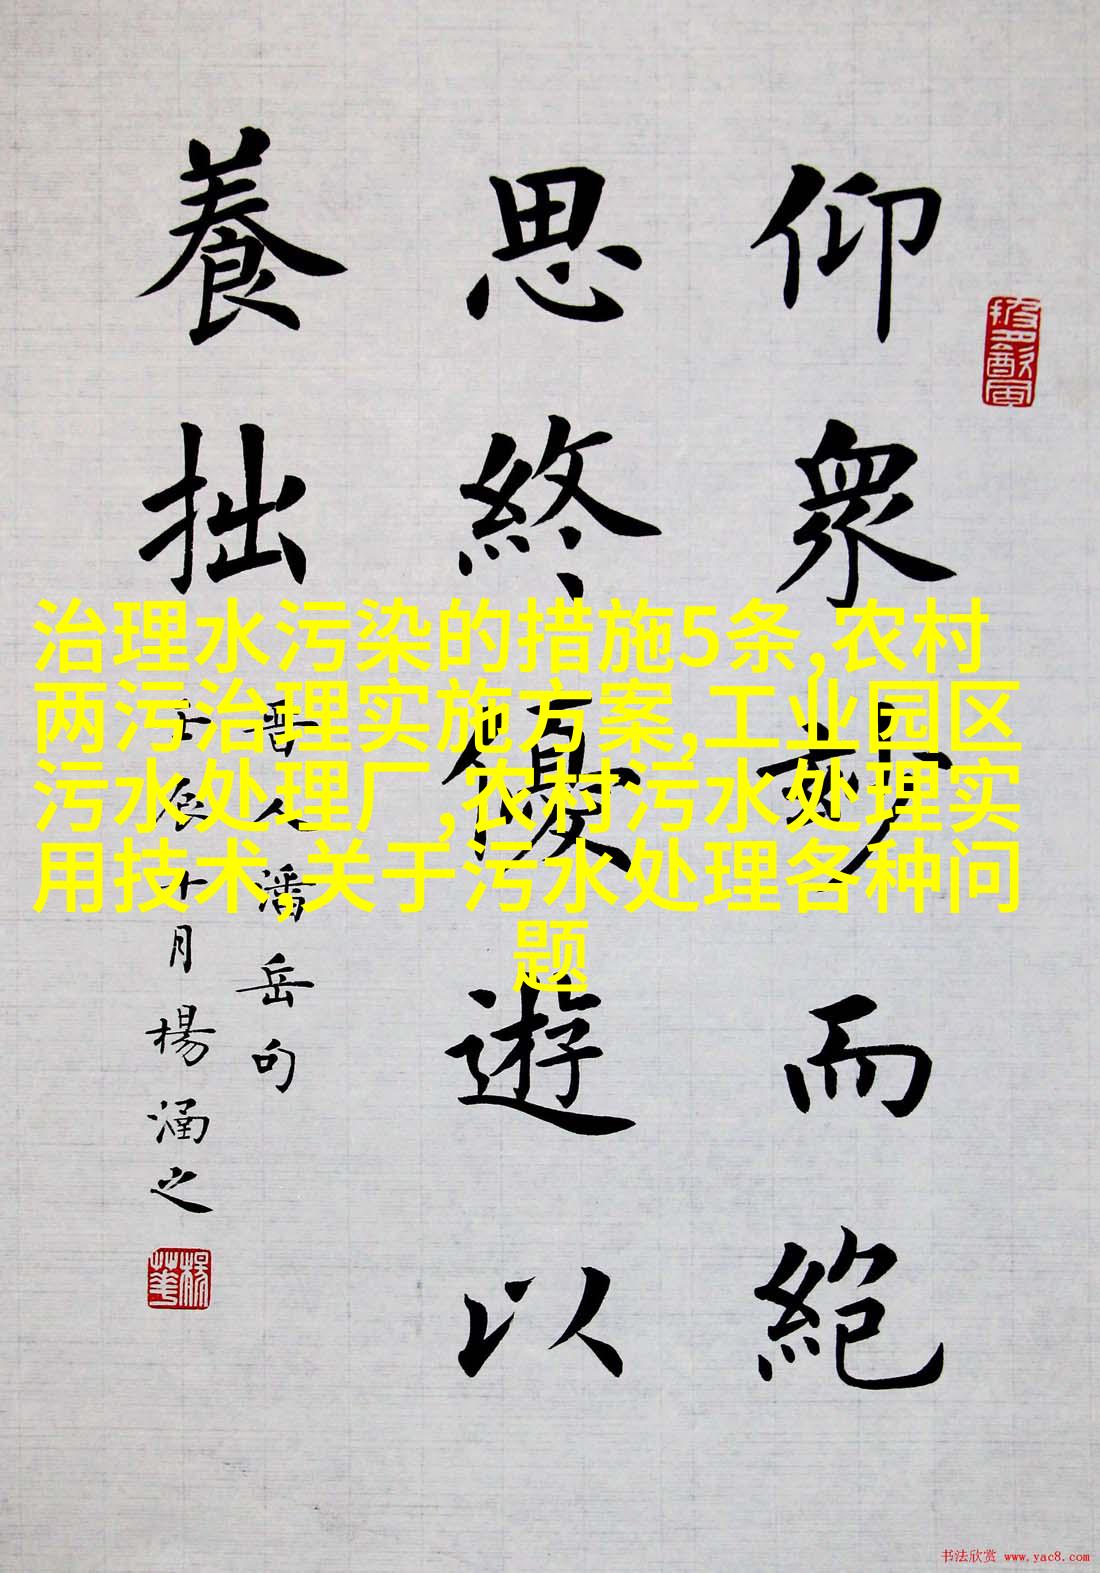 仰衆妙而絕
思終優遊以
養拙
晋人潘岳句
壬辰十月楊涵之
治理水污染的措施5条,农村
两污治理实施方案,工业园区
污水处理厂,农村污水处理实
用技术,关于污水处理各种问
题
书法欣赏 www.yac8.com